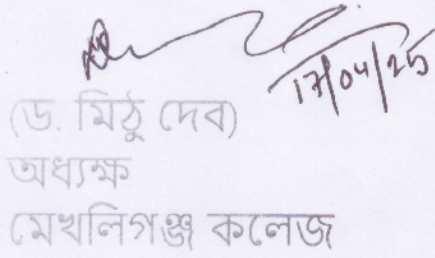 17/04/25
(ড. মিঠু দেব)
অধ্যক্ষ
মেখলিগঞ্জ কলেজ